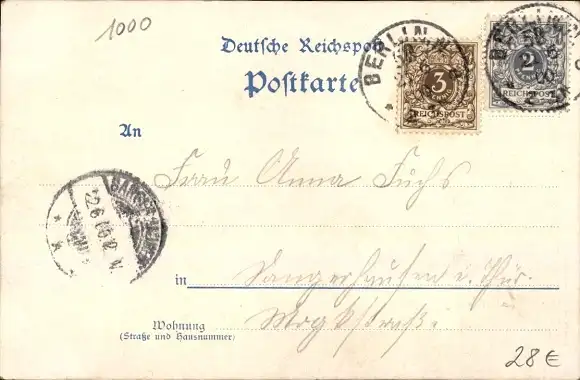 1000
Deutsche Reichspost
Postkarte
BERLIN
3
REICHSPOST
BERLIN
2
REICHSPOST
An
Frau Anna Fuchs
22.6.00
in Sangerhausen i. Thür.
Wohnung
(Straße und Hausnummer)
28€